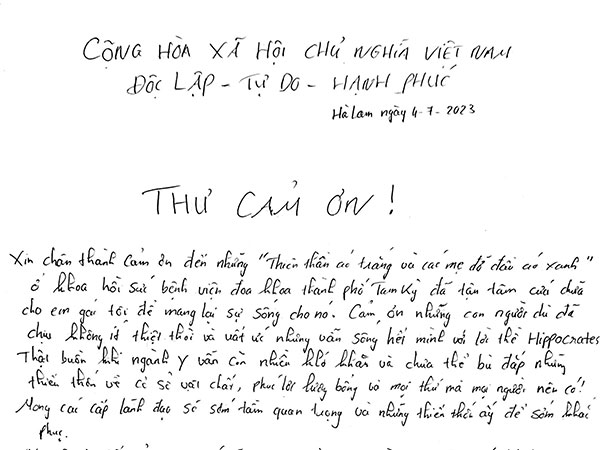 CỘNG HÒA XÃ HỘI CHỦ NGHĨA VIỆT NAM
ĐỘC LẬP - TỰ DO - HẠNH PHÚC
Hà Lam ngày 4-7-2023
THƯ CẢM ƠN!
Xin chân thành cảm ơn đến những "Thiên thần áo trắng và các mẹ đỡ đầu áo xanh"
ở khoa hồi sức bệnh viện đa khoa thành phố Tam Kỳ đã tận tâm cứu chữa
cho em gái tôi để mang lại sự sống cho nó. Cảm ơn những con người dù đã
chịu không ít thiệt thòi và vất vả nhưng vẫn sống hết mình với lời thề Hippocrates
Thật buồn khi ngành y vẫn còn nhiều khó khăn và chưa thể bù đắp những
thiếu thốn về cơ sở vật chất, phúc lợi lương bổng và mọi thứ mà mọi người nên có!
Mong các cấp lãnh đạo sẽ sớm tầm quan trọng và những thiếu thốn ấy để sớm khắc
phục.